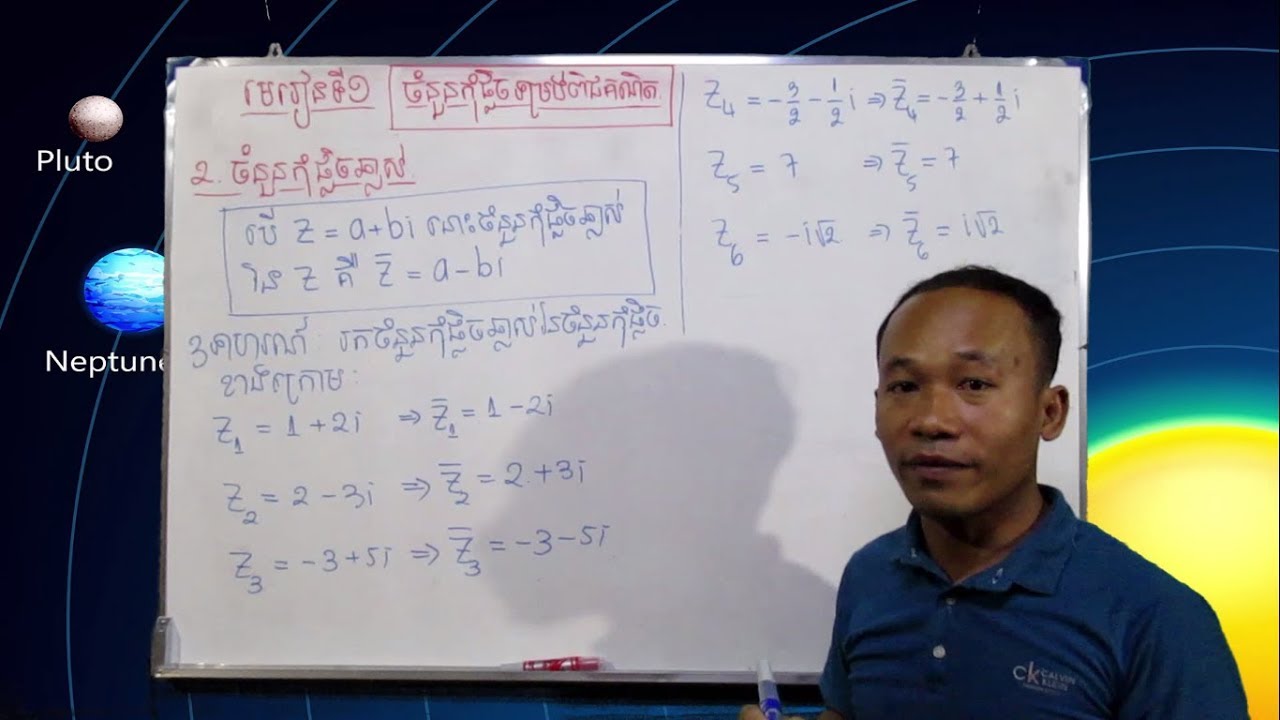 មេរៀនទី១ ចំនួនកុំផ្លិចទម្រង់ពីជគណិត
2. ចំនួនកុំផ្លិចឆ្លាស់
បើ z = a+bi នោះចំនួនកុំផ្លិចឆ្លាស់
នៃ z គឺ z̄ = a-bi
ឧទាហរណ៍: រកចំនួនកុំផ្លិចឆ្លាស់នៃចំនួនកុំផ្លិច
ខាងក្រោម:
z₁ = 1+2i ⇒ z̄₁ = 1-2i
z₂ = 2-3i ⇒ z̄₂ = 2.+3i
z₃ = -3+5i ⇒ z̄₃ = -3-5i
z₄ = -3/2 - 1/2 i ⇒ z̄₄ = -3/2 + 1/2 i
z₅ = 7 ⇒ z̄₅ = 7
z₆ = -i√2 ⇒ z̄₆ = i√2
Pluto
Neptune
ck CALVIN KLEIN